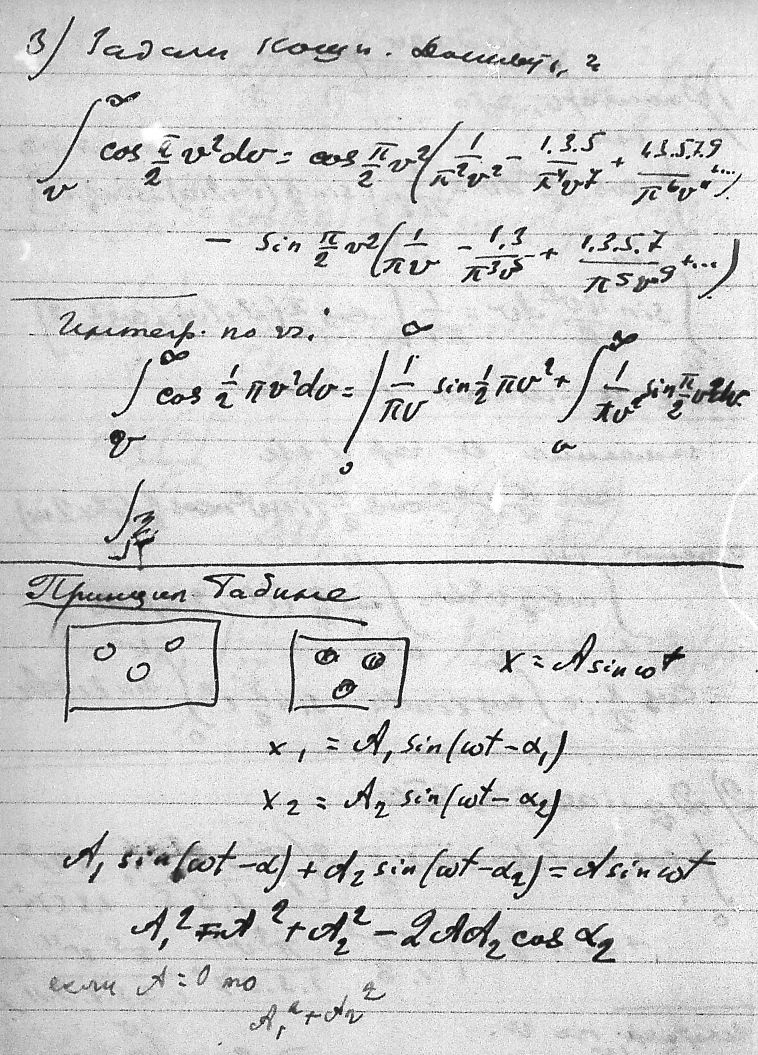 3) Задали Коши.
∫_v^∞ cos π/2 v² dv = cos π/2 v² (1/π²v² − 1.3.5/π⁴v⁷ + 1.3.5.7.9/π⁶v¹¹ ...)
− sin π/2 v² (1/πv − 1.3/π³v⁵ + 1.3.5.7/π⁵v⁹ + ...)
Интегр. по ч.
∫_v^∞ cos 1/2 πv² dv = |_0^∞ 1/πv sin 1/2 πv² + ∫_v^∞ 1/πv² sin π/2 v² dv
∫
Принцип Бабине
x = A sin ωt
x₁ = A₁ sin(ωt − α₁)
x₂ = A₂ sin(ωt − α₂)
A₁ sin(ωt − α) + A₂ sin(ωt − α₂) = A sin ωt
A₁² = A² + A₂² − 2AA₂ cos α₂
если A = 0 то
A₁² + A₂²